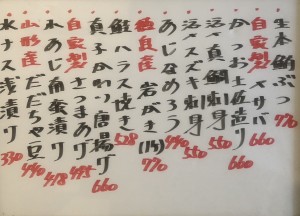 生本鮪ぶつ 770
自家製 〆サバ 660
かつお土佐造り 660
活〆真鯛刺身 550
活〆スズキ刺身 550
あじなめろう 440
産 岩がき(1ヶ) 770
鮭ハラス焼き 528
真子かれい唐揚げ 660
自家製 さつまあげ 495
水あじ南蛮漬け 418
山形産 だだちゃ豆 440
水ナス浅漬け 330